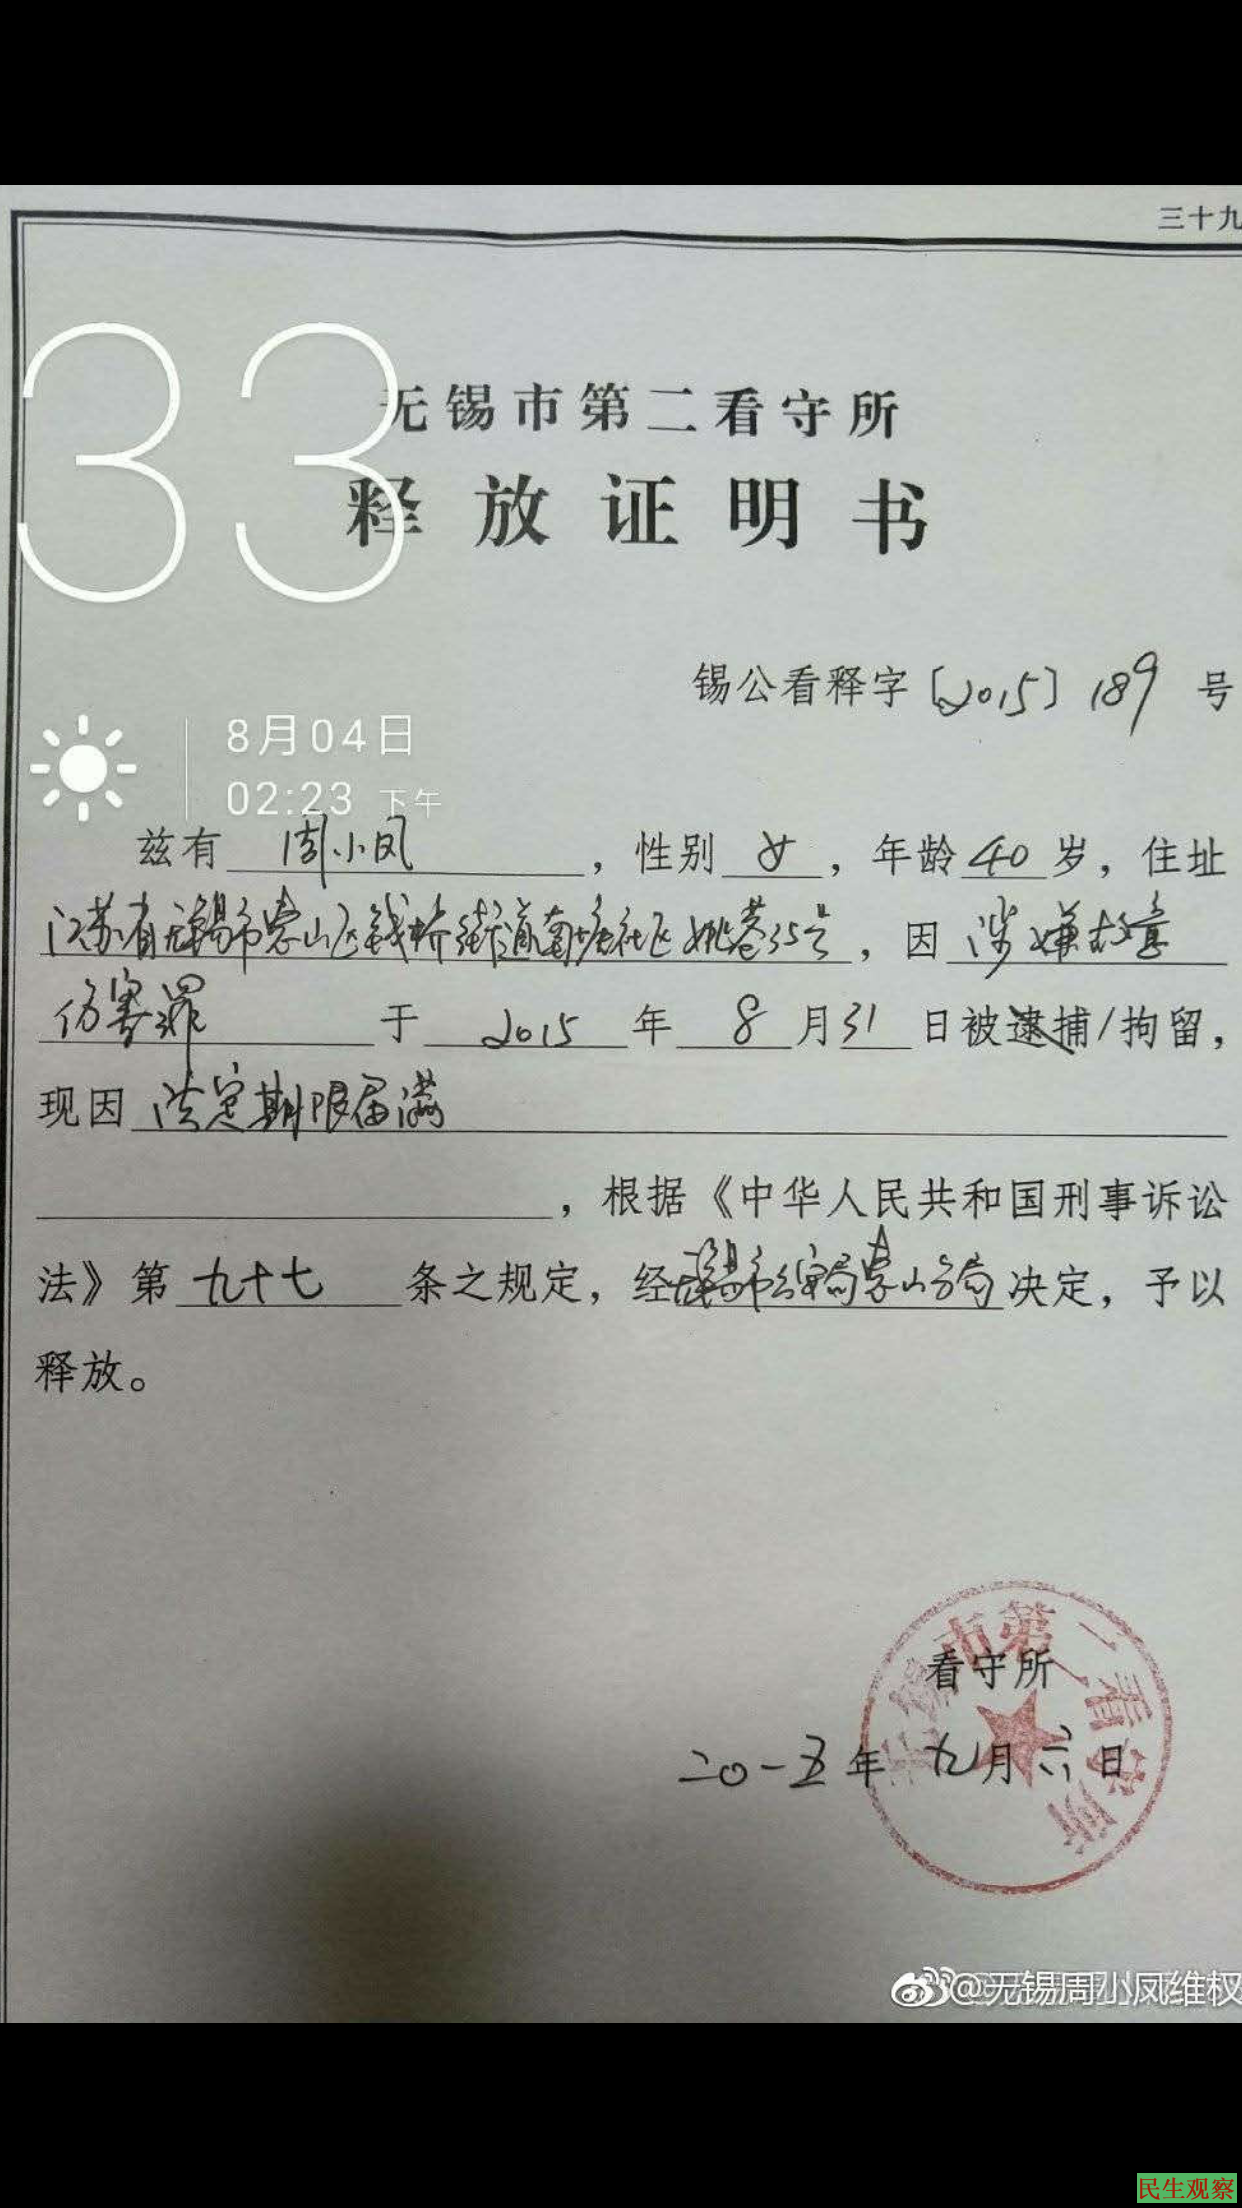 三十九
33
无锡市第二看守所
释放证明书
锡公看释字〔2015〕189号
8月04日
02:23 下午
兹有 周小凤 ，性别 女 ，年龄 40 岁，住址
江苏省无锡市惠山区钱桥街道南塘社区姚巷35号，因 涉嫌故意
伤害罪 于 2015 年 8 月 31 日被逮捕/拘留，
现因 法定期限届满
，根据《中华人民共和国刑事诉讼
法》第 九十七 条之规定，经无锡市公安局惠山分局决定，予以
释放。
无锡市第二看守所
看守所
二〇一五年 九月六日
@无锡周小凤维权
民生观察